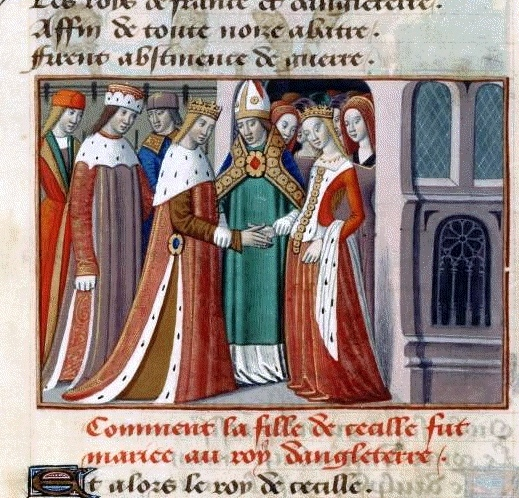 Les roys de france et dangleterre.
Affin de toute noize abatre.
firent abstinence de guerre.
Comment la fille de cecille fut
mariee au roy dangleterre.
Et alors le roy de cecille.